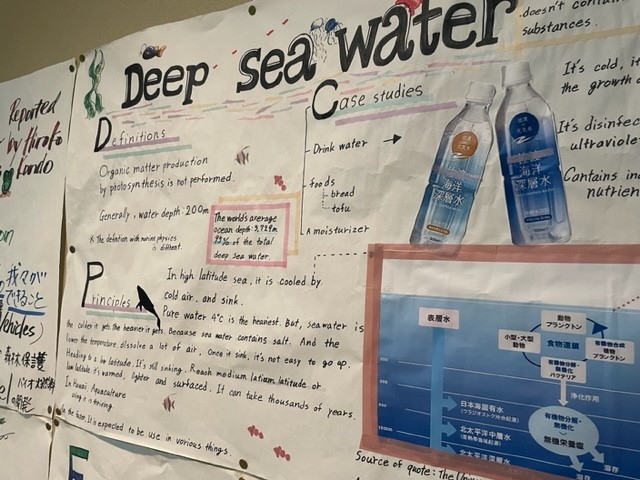 Reported
by Hiroko
Kondo
我々が
できること
Vehicles)
森林保護
Deep sea water
Definitions
Organic matter production
by photosynthesis is not performed.
Generally, water depth 200m
※ The defintion with marine physics
is different.
The world's average
ocean depth: 3,729m
95% of the total
deep sea water.
Case studies
Drink water →
foods
bread
tofu
A moisturizer
doesn't contain
substances.
It's cold, it
the growth
It's disinfec
ultraviole
Contains in
nutrien
海洋
深層水
海洋
深層水
Principles
In high latitude sea, it is cooled by
cold air. and sink.
Pure water 4°C is the heaviest. But, seawater is
the colder it gets the heavier it gets. Because sea water contains salt. And the
lower the temperature dissolve a lot of air. Once it sink, it's not easy to go up.
Heading to a low latitude. It's still sinking. Reach medium latitude or
low latitude it's warmed, lighter and surfaced. It can take thousands of years.
In Hawaii, Aquaculture
using it is thriving.
the future, It is expected to be use in various things.
表層水
動物
プランクトン
小型・大型
動物
食物連鎖
有機物合成
植物
プランクトン
有機物分解・
無機化
バクテリア
浄化作用
有機物分解・
無機化
無機栄養塩
日本海固有水
(ウラジオストク沖合起源)
北太平洋中層水
(亜寒帯海域起源)
北太平洋深層水
溶存
溶存
Source of quote: The Un